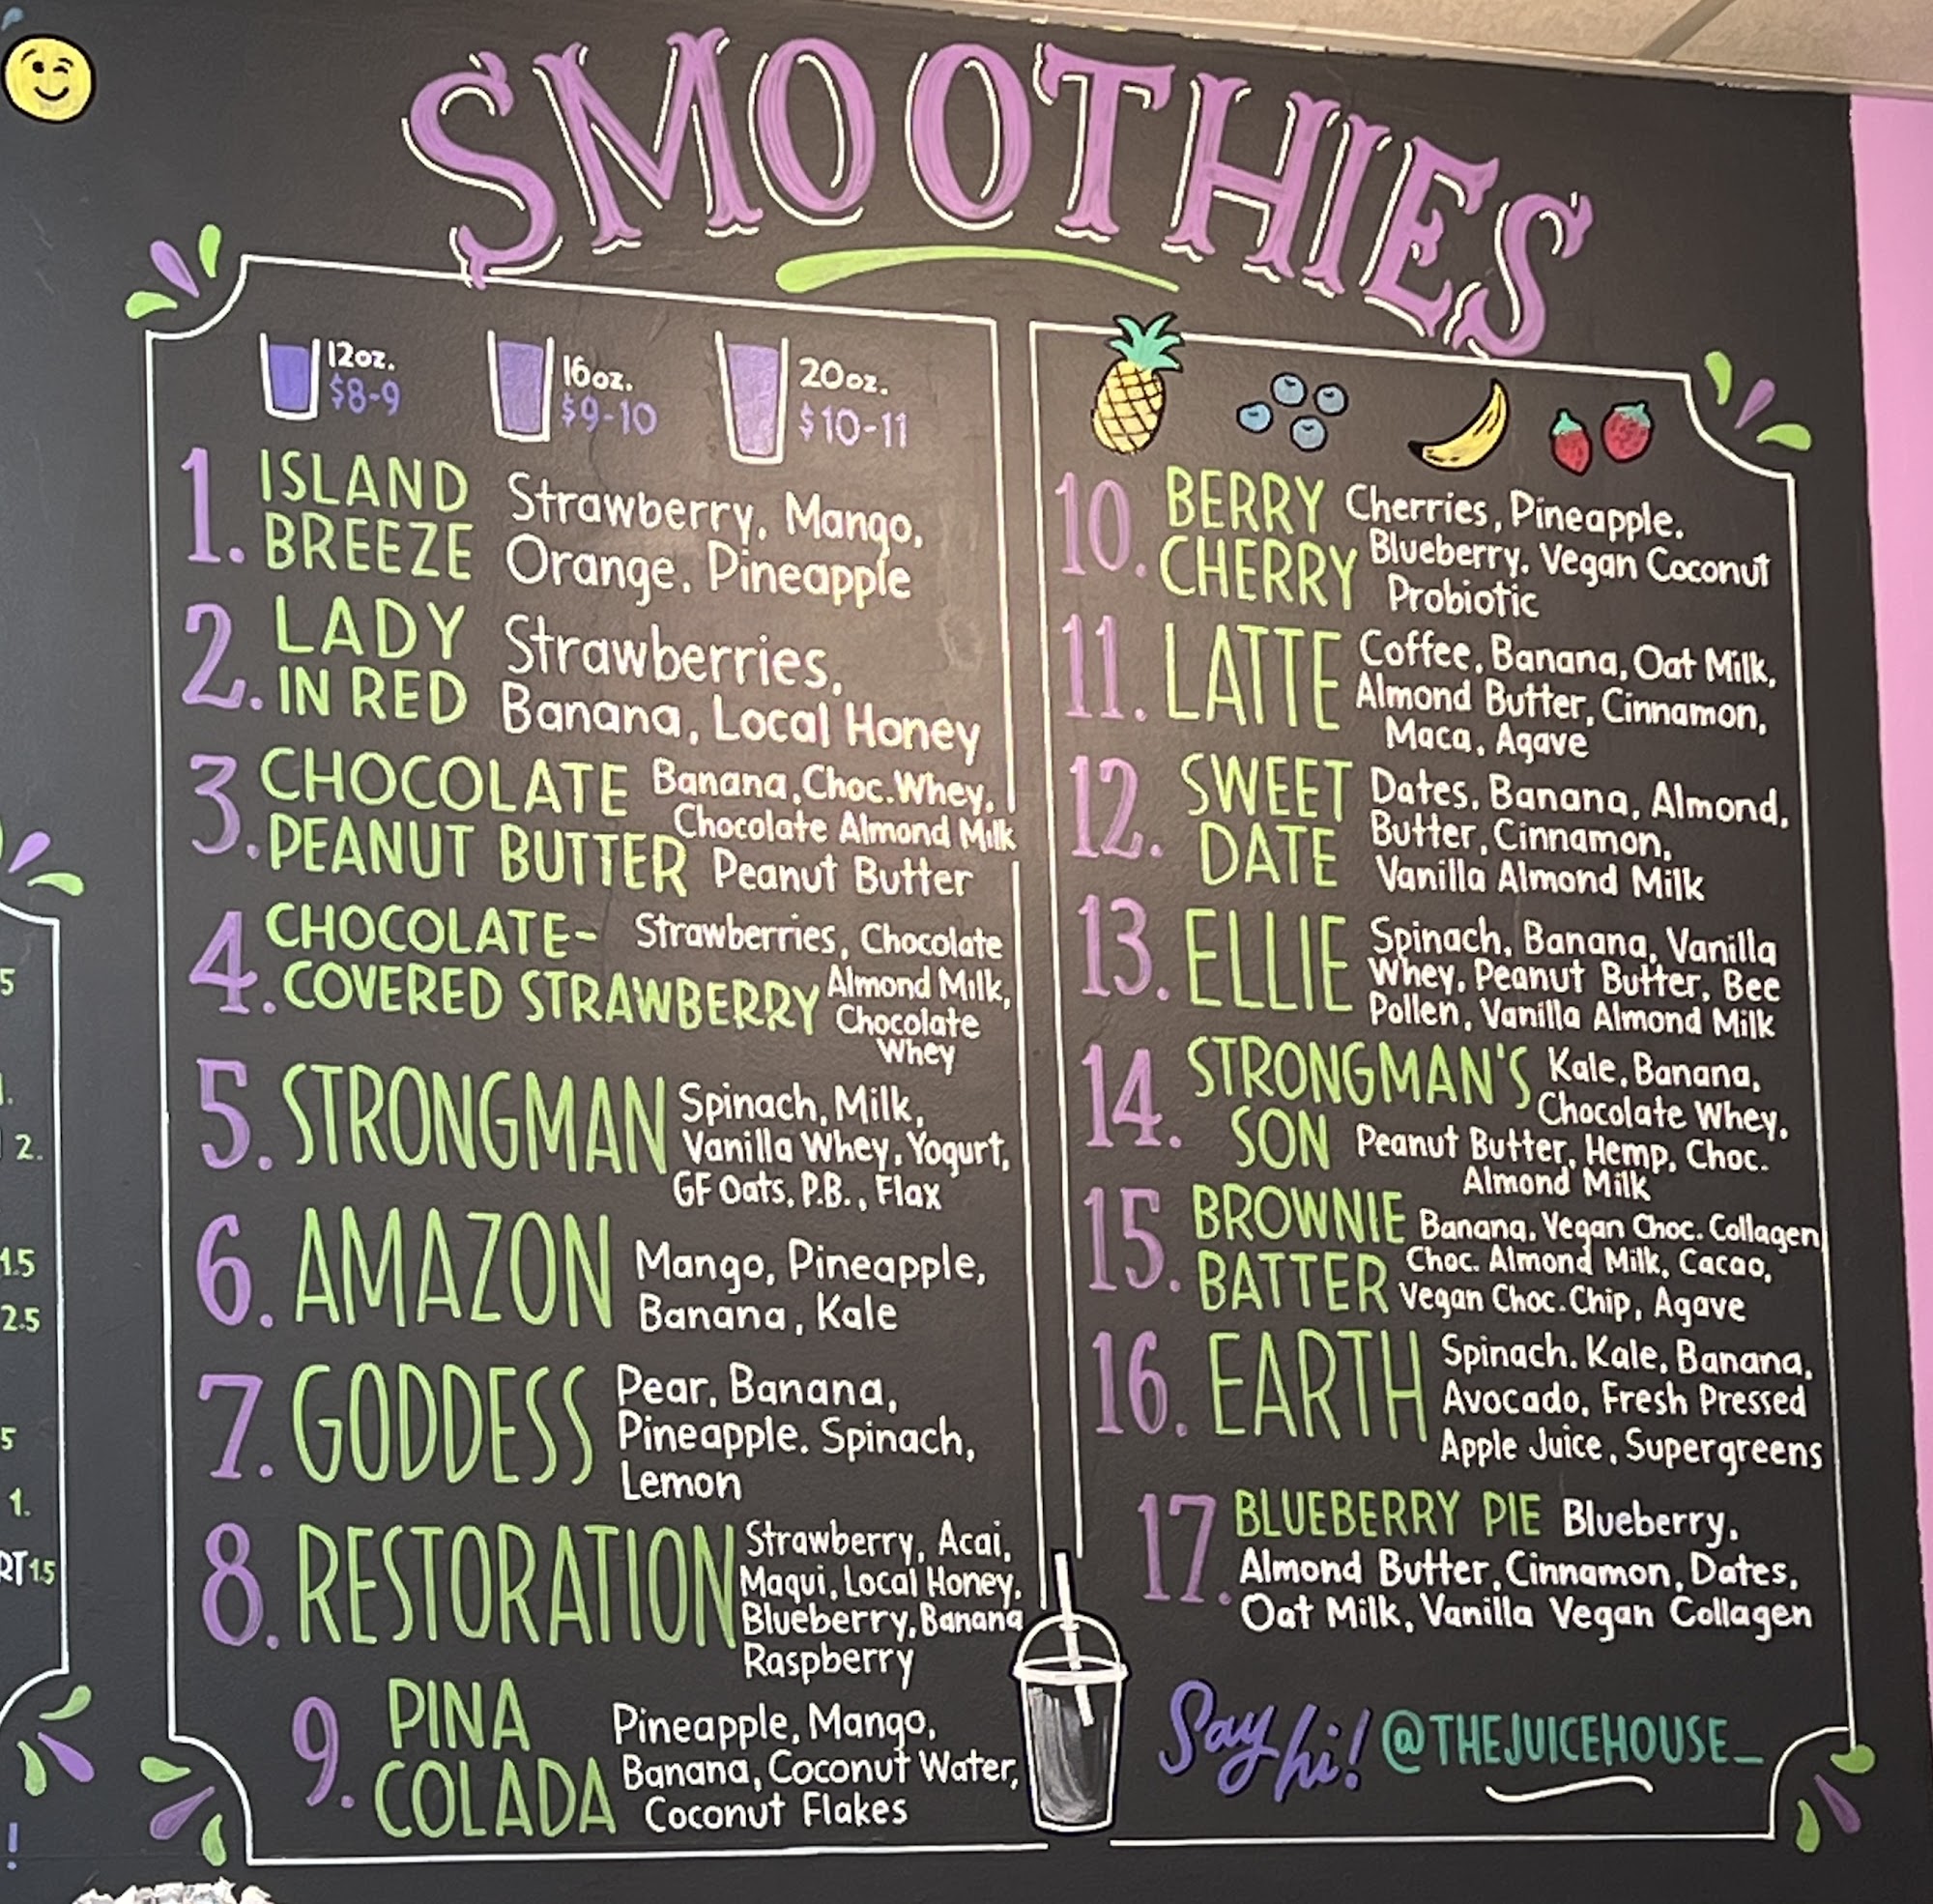 SMOOTHIES
12oz.
$8-9
16oz.
$9-10
20oz.
$10-11
1. ISLAND
BREEZE
Strawberry, Mango,
Orange, Pineapple
2. LADY
IN RED
Strawberries,
Banana, Local Honey
3. CHOCOLATE
PEANUT BUTTER
Banana, Choc. Whey,
Chocolate Almond Milk
Peanut Butter
4. CHOCOLATE-
COVERED STRAWBERRY
Strawberries, Chocolate
Almond Milk,
Chocolate
Whey
5. STRONGMAN
Spinach, Milk,
Vanilla Whey, Yogurt,
GF Oats, P.B., Flax
6. AMAZON
Mango, Pineapple,
Banana, Kale
7. GODDESS
Pear, Banana,
Pineapple. Spinach,
Lemon
8. RESTORATION
Strawberry, Acai,
Maqui, Local Honey,
Blueberry, Banana
Raspberry
9. PINA
COLADA
Pineapple, Mango,
Banana, Coconut Water,
Coconut Flakes
10. BERRY
CHERRY
Cherries, Pineapple.
Blueberry. Vegan Coconut
Probiotic
11. LATTE
Coffee, Banana, Oat Milk,
Almond Butter, Cinnamon,
Maca, Agave
12. SWEET
DATE
Dates, Banana, Almond,
Butter, Cinnamon,
Vanilla Almond Milk
13. ELLIE
Spinach, Banana, Vanilla
Whey, Peanut Butter, Bee
Pollen, Vanilla Almond Milk
14. STRONGMAN'S
SON
Kale, Banana,
Chocolate Whey,
Peanut Butter, Hemp, Choc.
Almond Milk
15. BROWNIE
BATTER
Banana, Vegan Choc. Collagen
Choc. Almond Milk, Cacao,
Vegan Choc. Chip, Agave
16. EARTH
Spinach. Kale, Banana,
Avocado, Fresh Pressed
Apple Juice, Supergreens
17. BLUEBERRY PIE
Blueberry,
Almond Butter, Cinnamon, Dates,
Oat Milk, Vanilla Vegan Collagen
Say hi! @THEJUICEHOUSE_
5
2.
1.5
2.5
5
1.
RT 1.5
!